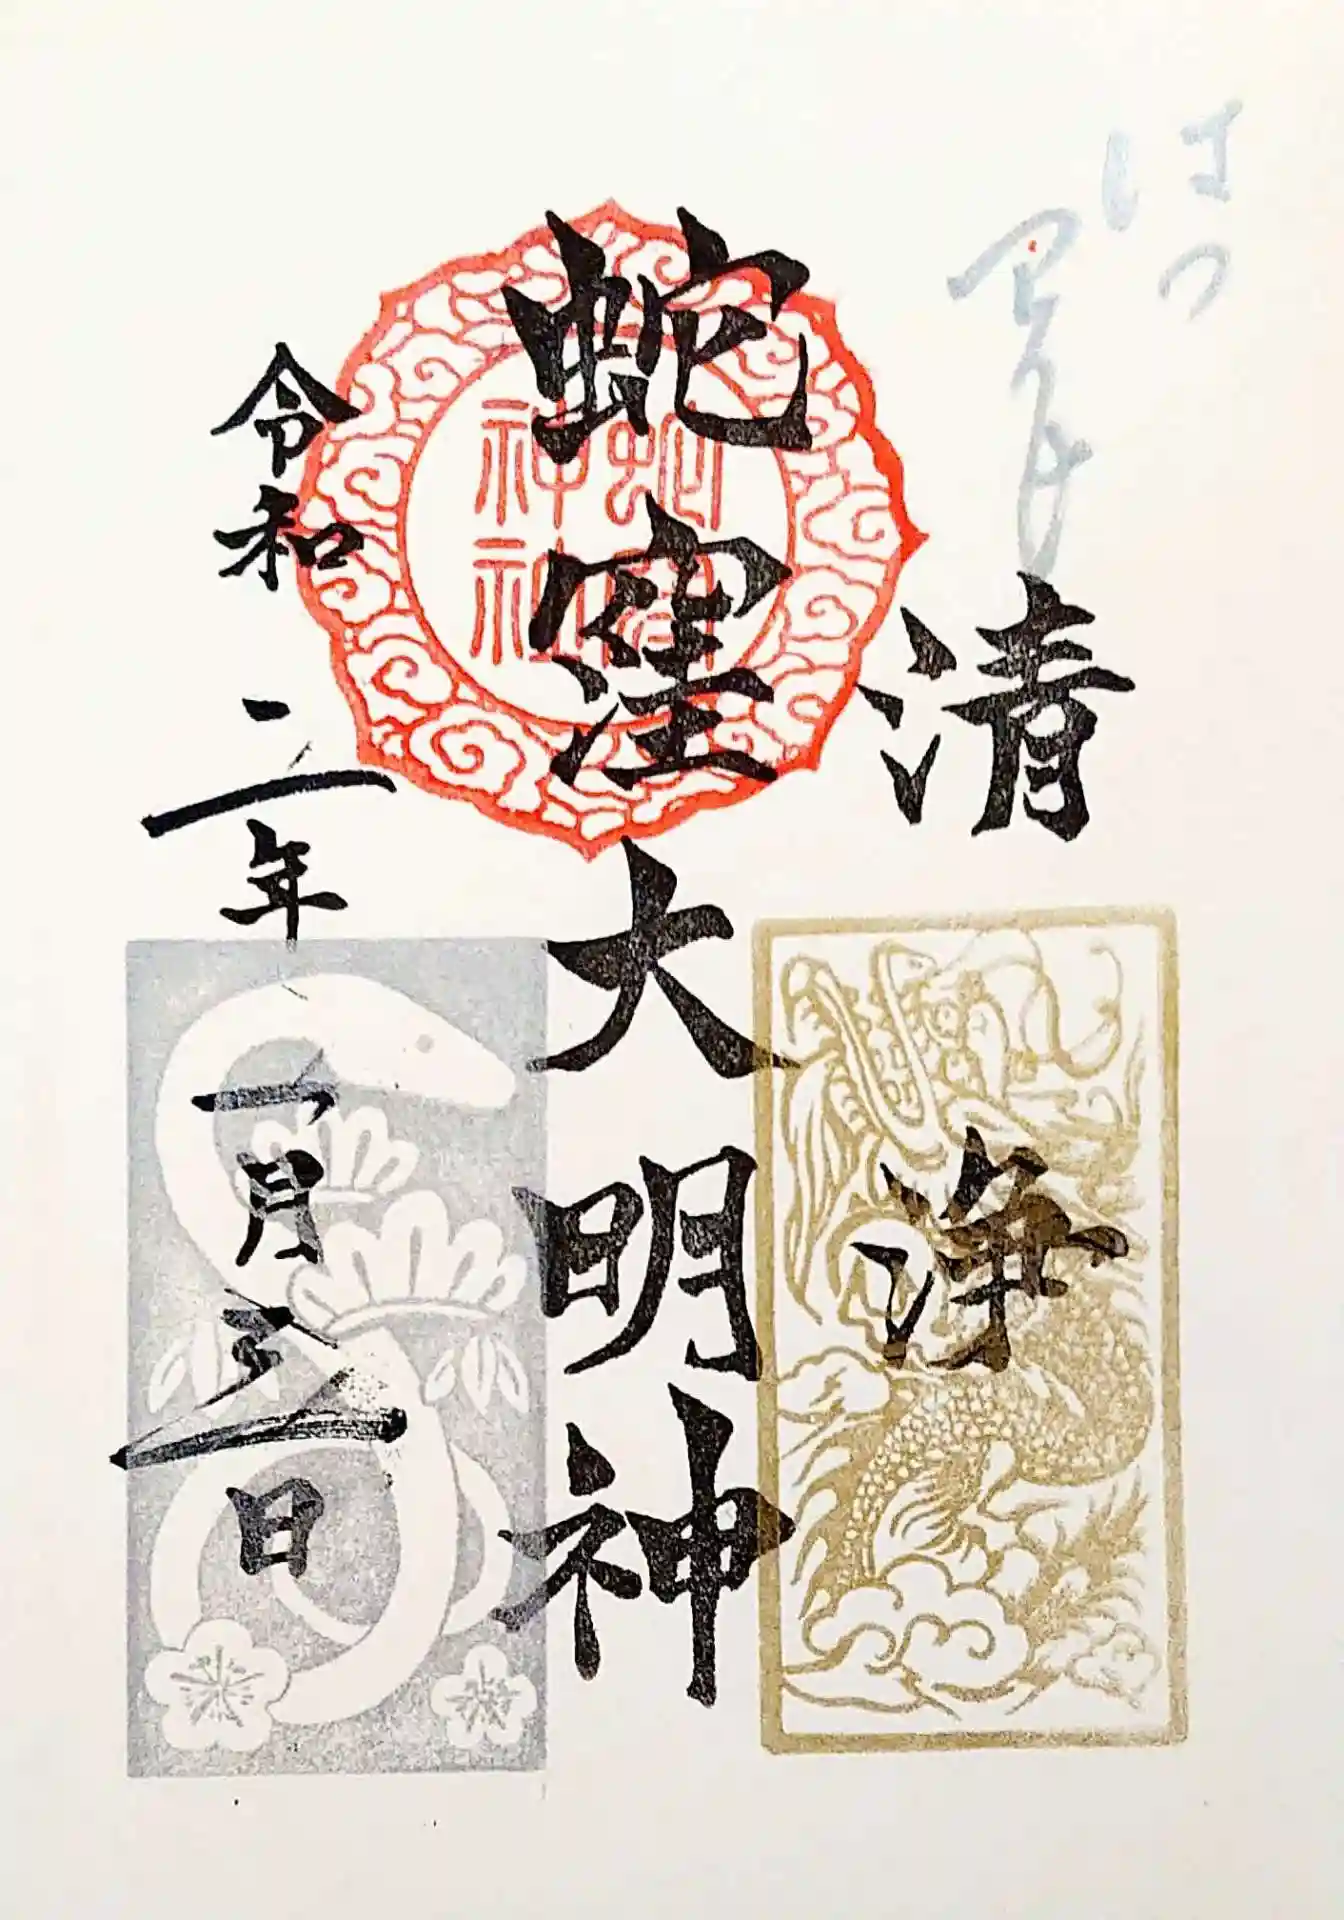 はつ
清浄
蛇窪大明神
蛇窪
神社
令和二年一月三日